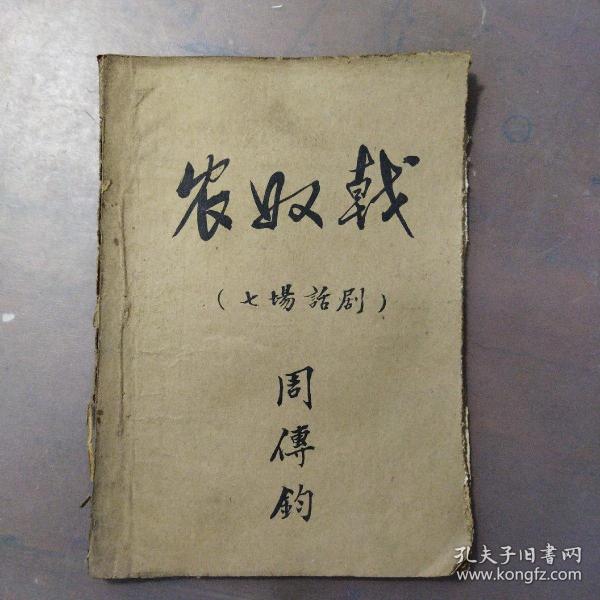 农奴戟
(七場話剧)
周傳鈞
孔夫子旧書网
www.kongfz.com